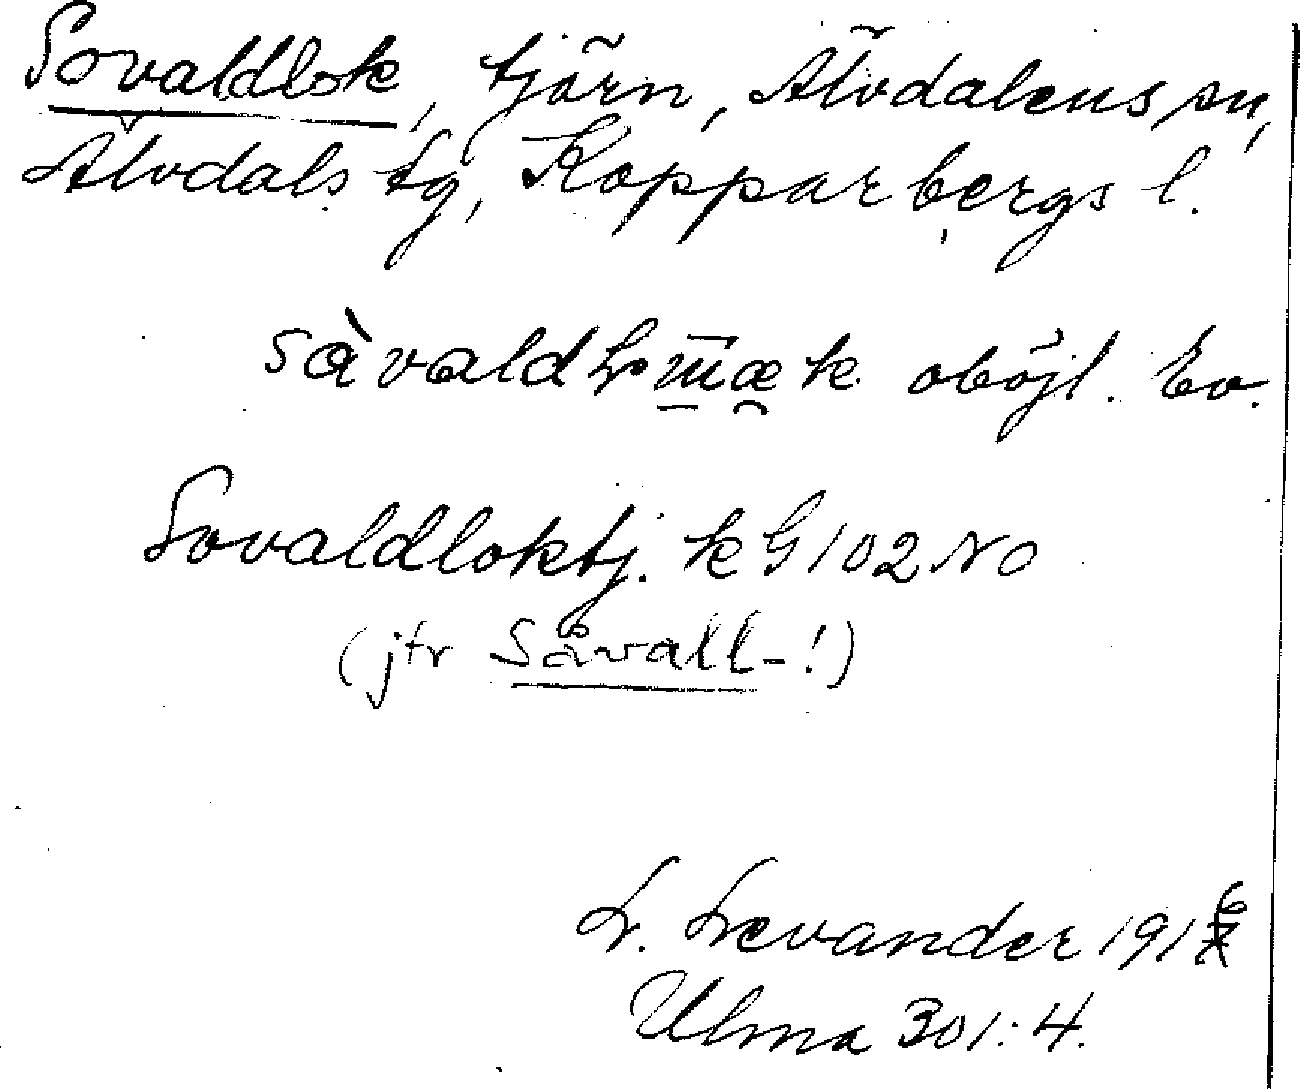 Sovaldlok, tjärn, Älvdalens sn,
Älvdals tg, Kopparbergs l.
oböjl. Ev.
Sovaldloktj. k G 102 NO
(jfr Såvall-!)
L. Levander 1916
Ulma 301:4.